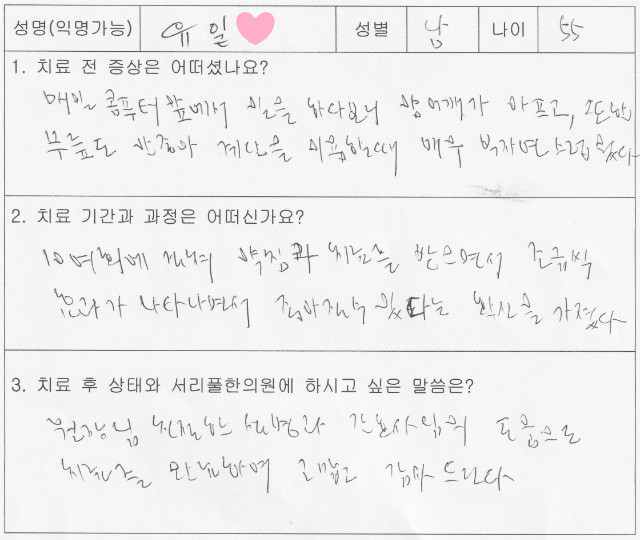 성명(익명가능) 유일 성별 남 나이 55
1. 치료 전 증상은 어떠셨나요?
매일 콤퓨터 앞에서 일을 하다보니 양어깨가 아프고, 또한
무릎도 안좋아 계단을 이용할때 매우 부자연스러웠다
2. 치료 기간과 과정은 어떠신가요?
10여회에 걸쳐 약침과 치료를 받으면서 조금씩
효과가 나타나면서 좋아질수 있다는 확신을 가졌다
3. 치료 후 상태와 서리풀한의원에 하시고 싶은 말씀은?
원장님 친절한 설명과 간호사님의 도움으로
치료를 완료하여 고맙고 감사 드린다